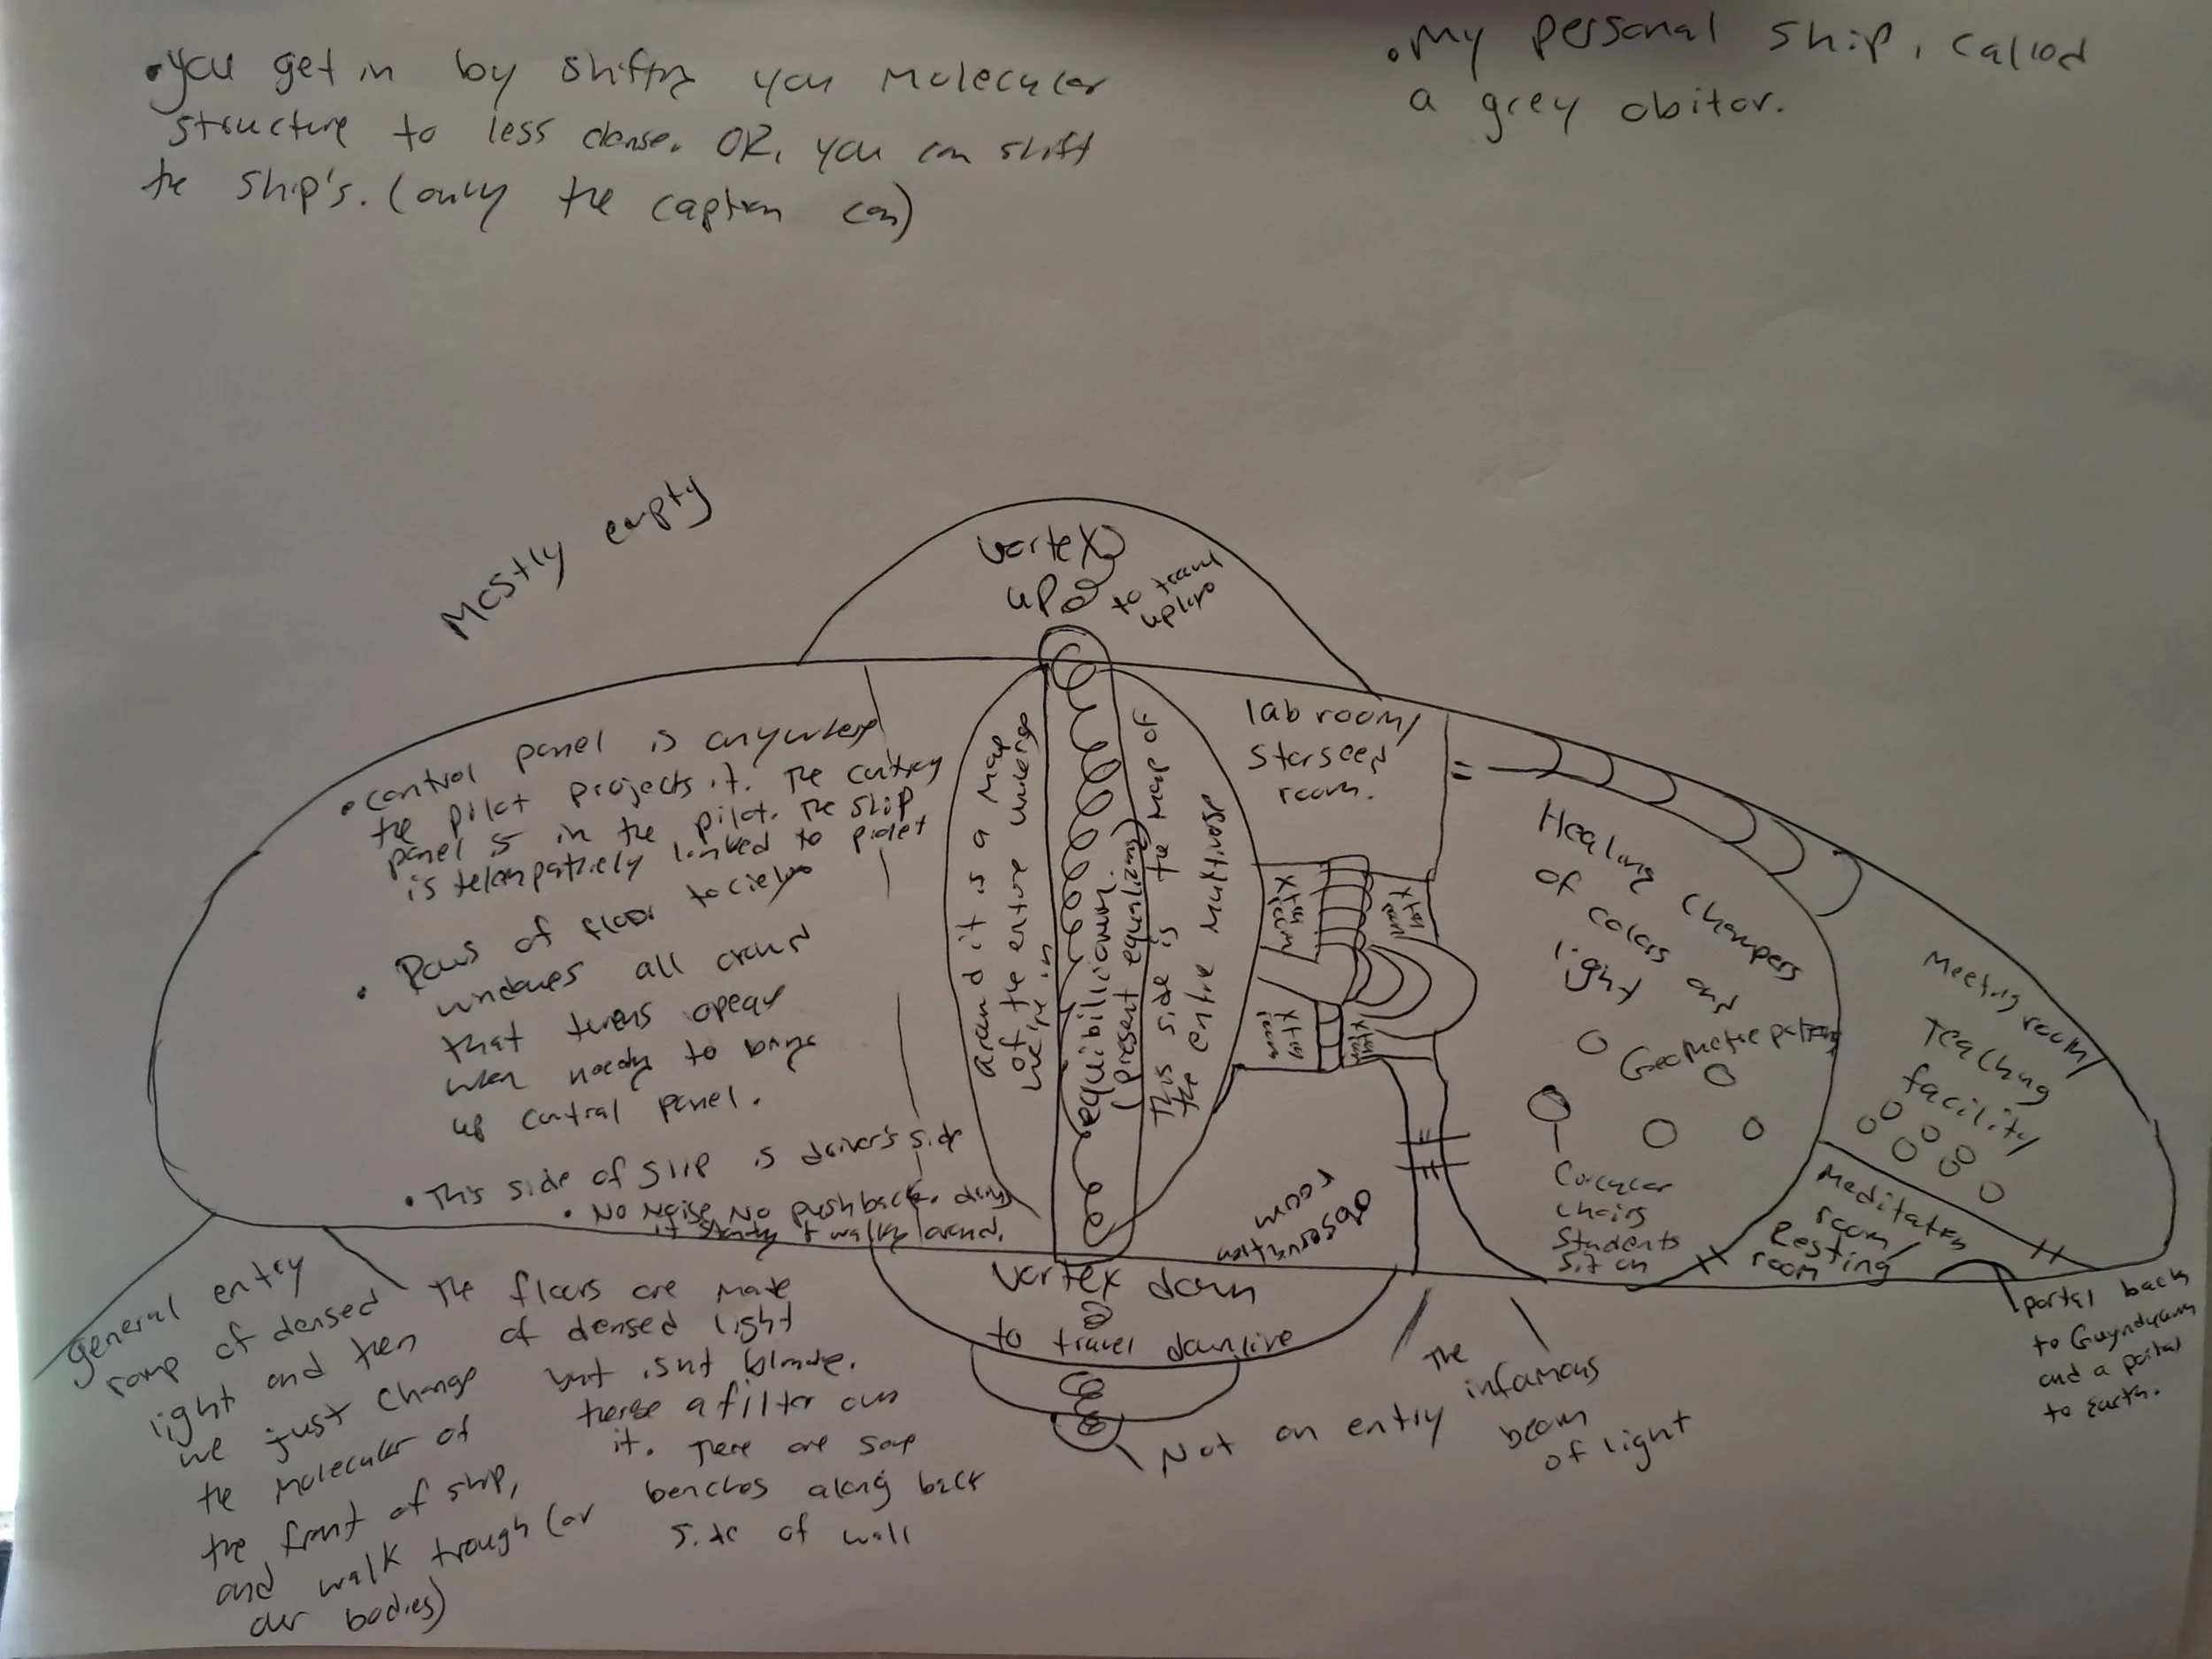 • you get in by shifting you molecular
structure to less dense. OR, you can shift
the ship's. (only the captian can)
• My personal ship, called
a grey obitor.
Mostly empty
vortex
up
to travel
uplive
• control panel is anywhere
the pilot projects it. The control
panel is in the pilot. The ship
is telempathicly linked to
• Rows of floor to cieling
windows all around
that turns opaque
when needing to bring
up control panel.
• This side of ship is driver's side
• No noise, No pushback.
walking around.
around it is a map
of the entire universe
we're in
equibilibrium.
(present equalizing)
This side is the map of
the entire multiverse
lab room/
starseed
room.
observation
room
Healing chambers
of colors and
light
Geometric patterns
Circular
chairs
students
sit on
Meeting room/
Teaching
facility
Meditation
room/
Resting
room
vortex down
to travel downlive
general entry
ramp of densed
light and then
we just change
the molecular of
the front of ship,
and walk trough (or
our bodies)
The floors are made
of densed light
but isnt blinding.
theres a filter over
it. There are some
benches along back
side of wall
Not an entry
The
infamous
beam
of light
portal back
to
and a portal
to Earth.